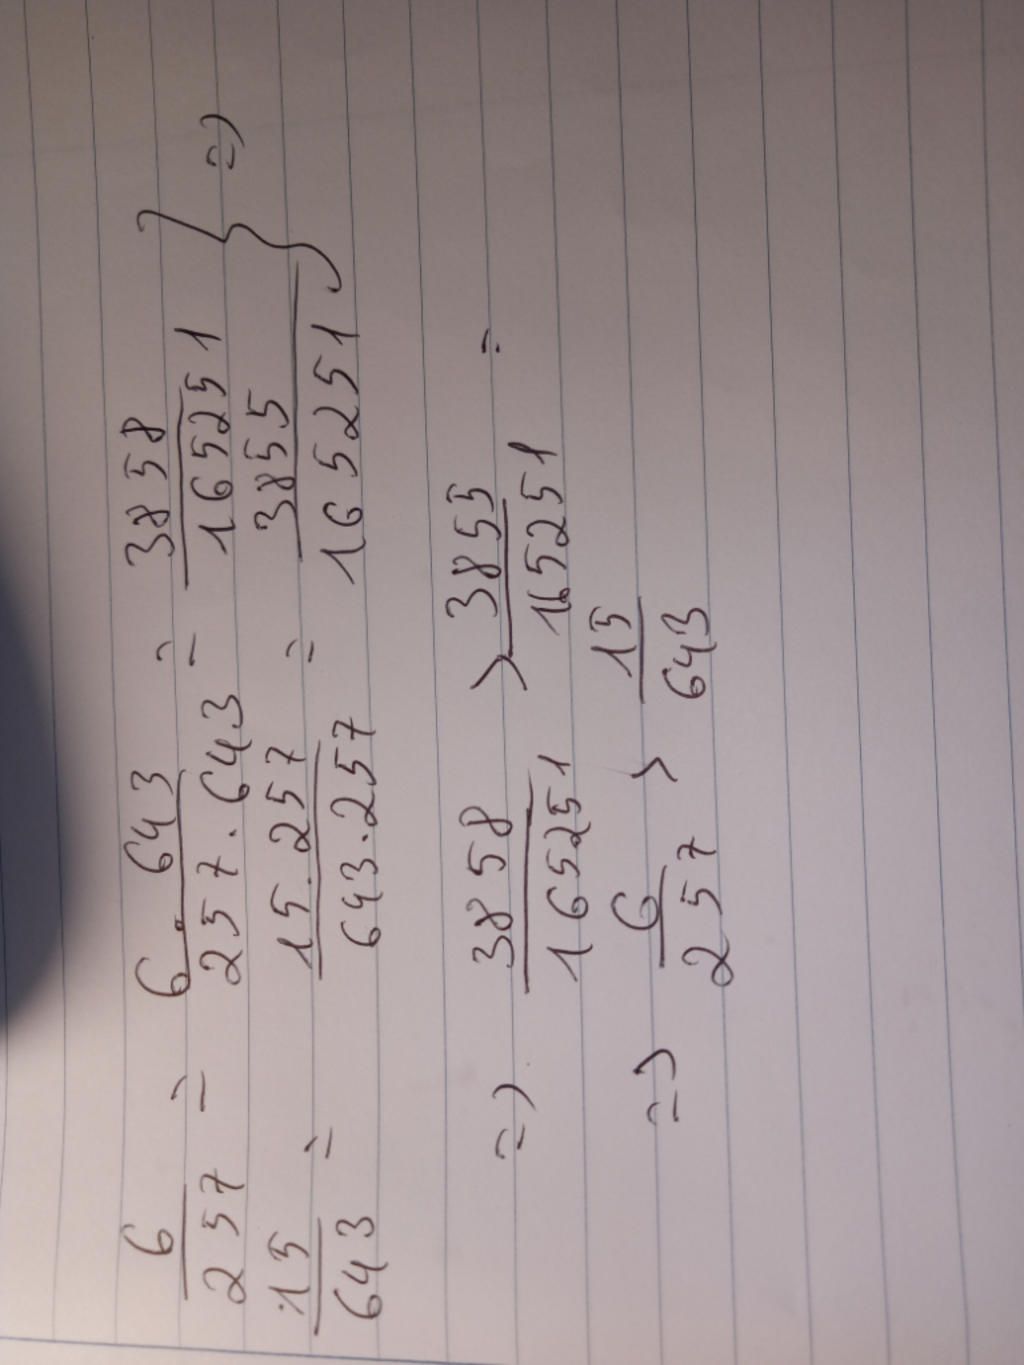 6/257 = 6.643/257.643 = 3858/165251
15/643 = 15.257/643.257 = 3855/165251 } =>
=> 3858/165251 > 3855/165251 =
=> 6/257 > 15/643